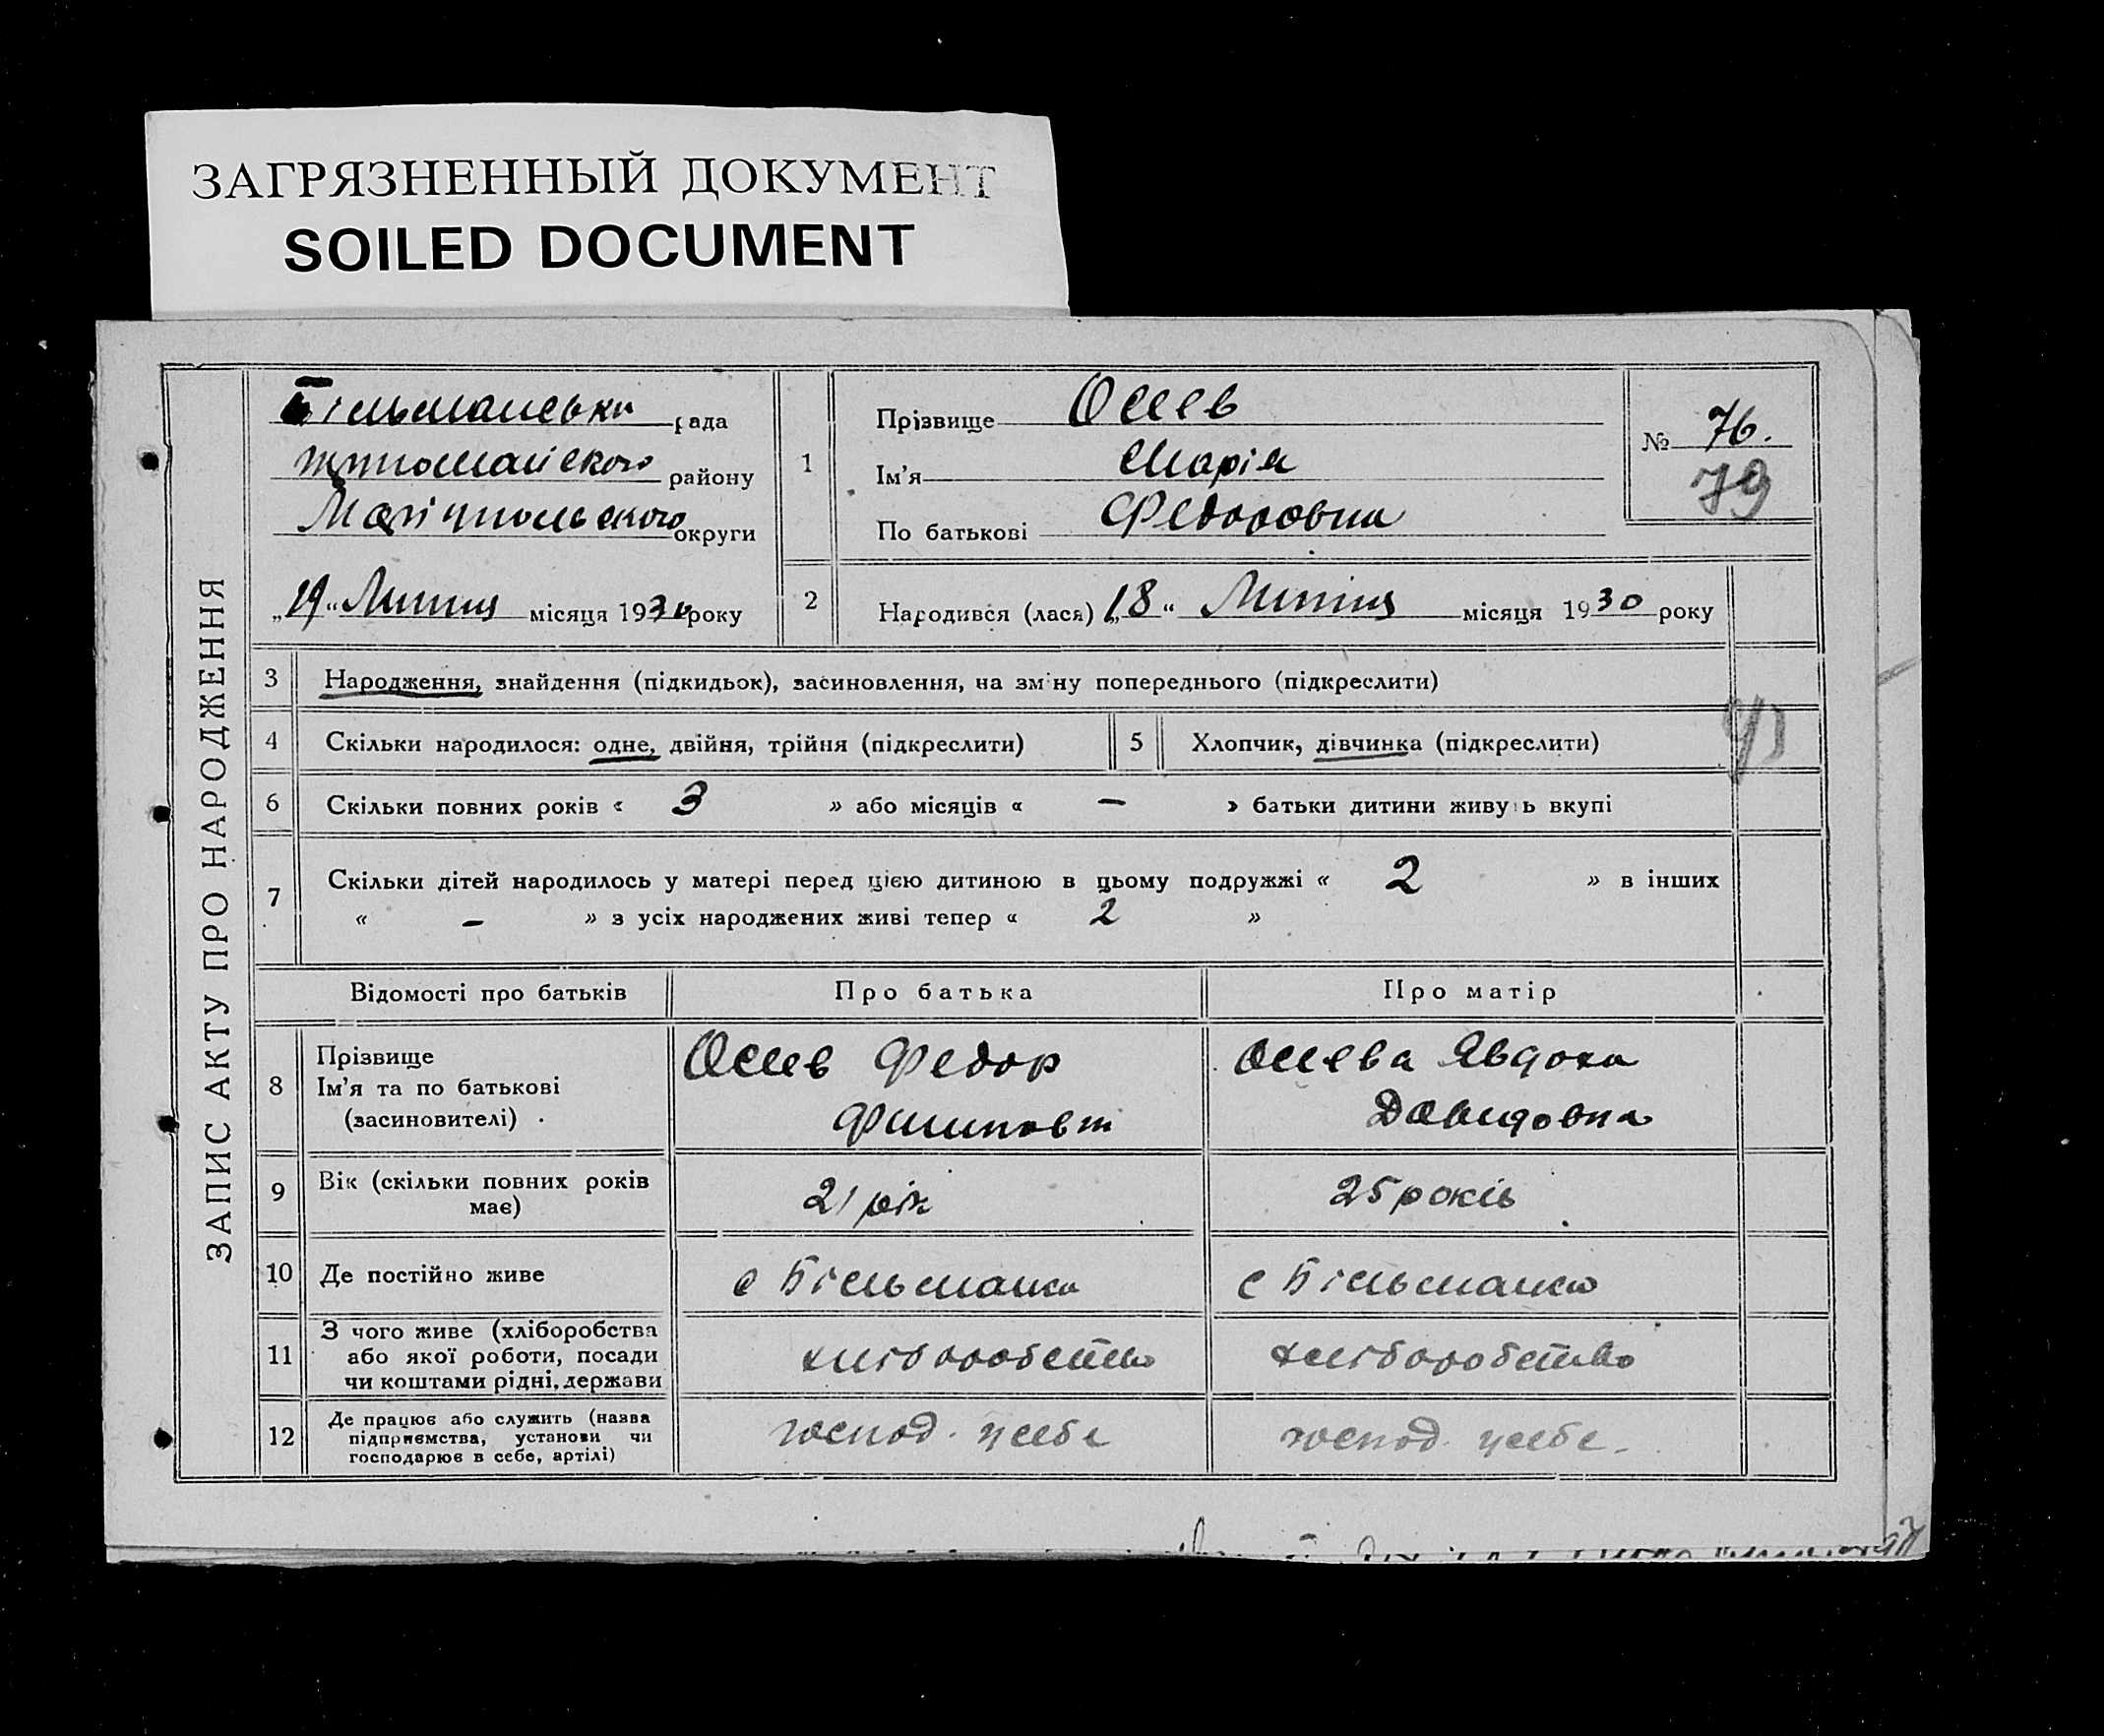 ЗАГРЯЗНЕННЫЙ ДОКУМЕНТ
SOILED DOCUMENT
ЗАПИС АКТУ ПРО НАРОДЖЕННЯ
Більманська рада
району
Маріупольського округи
„19“ Липня місяця 1930 року
1
Прізвище
Ім'я Марія
По батькові Федоровна
№ 76.
79
2
Народився (лася) „18“ Липня місяця 1930 року
3 Народження, знайдення (підкидьок), засиновлення, на зміну попереднього (підкреслити)
4 Скільки народилося: одне, двійня, трійня (підкреслити)
5 Хлопчик, дівчинка (підкреслити)
6 Скільки повних років « 3 » або місяців « — » батьки дитини живуть вкупі
7 Скільки дітей народилось у матері перед цією дитиною в цьому подружжі « 2 » в інших
« — » з усіх народжених живі тепер « 2 »
Відомості про батьків Про батька Про матір
8 Прізвище
Ім'я та по батькові
(засиновителі)
Федор
Явдоха
Давидовна
9 Вік (скільки повних років
має)
21 рік
25 років
10 Де постійно живе
с Більманка
с Більманка
11 З чого живе (хліборобства
або якої роботи, посади
чи коштами рідні, держави
хліборобство
хліборобство
12 Де працює або служить (назва
підприємства, установи чи
господарює в себе, артілі)
господ. у себе
господ. у себе.